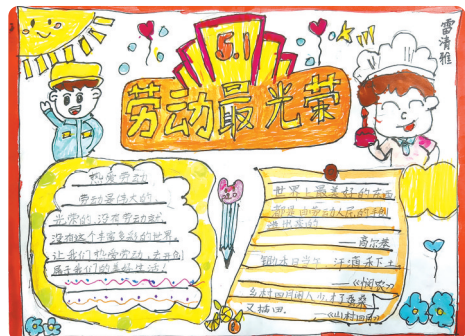 雷清雅
5.1
劳动最光荣
热爱劳动
劳动是伟大的、
光荣的，没有劳动就
没有这个丰富多彩的世界。
让我们热爱劳动，去开创
属于我们的美好生活！
世界上最美好的东西
都是由劳动人民的手创
造出来的
——高尔基
锄禾日当午 汗滴禾下土
——《悯农》
乡村四月闲人少，才了蚕桑
又插田。
——《乡村四月》